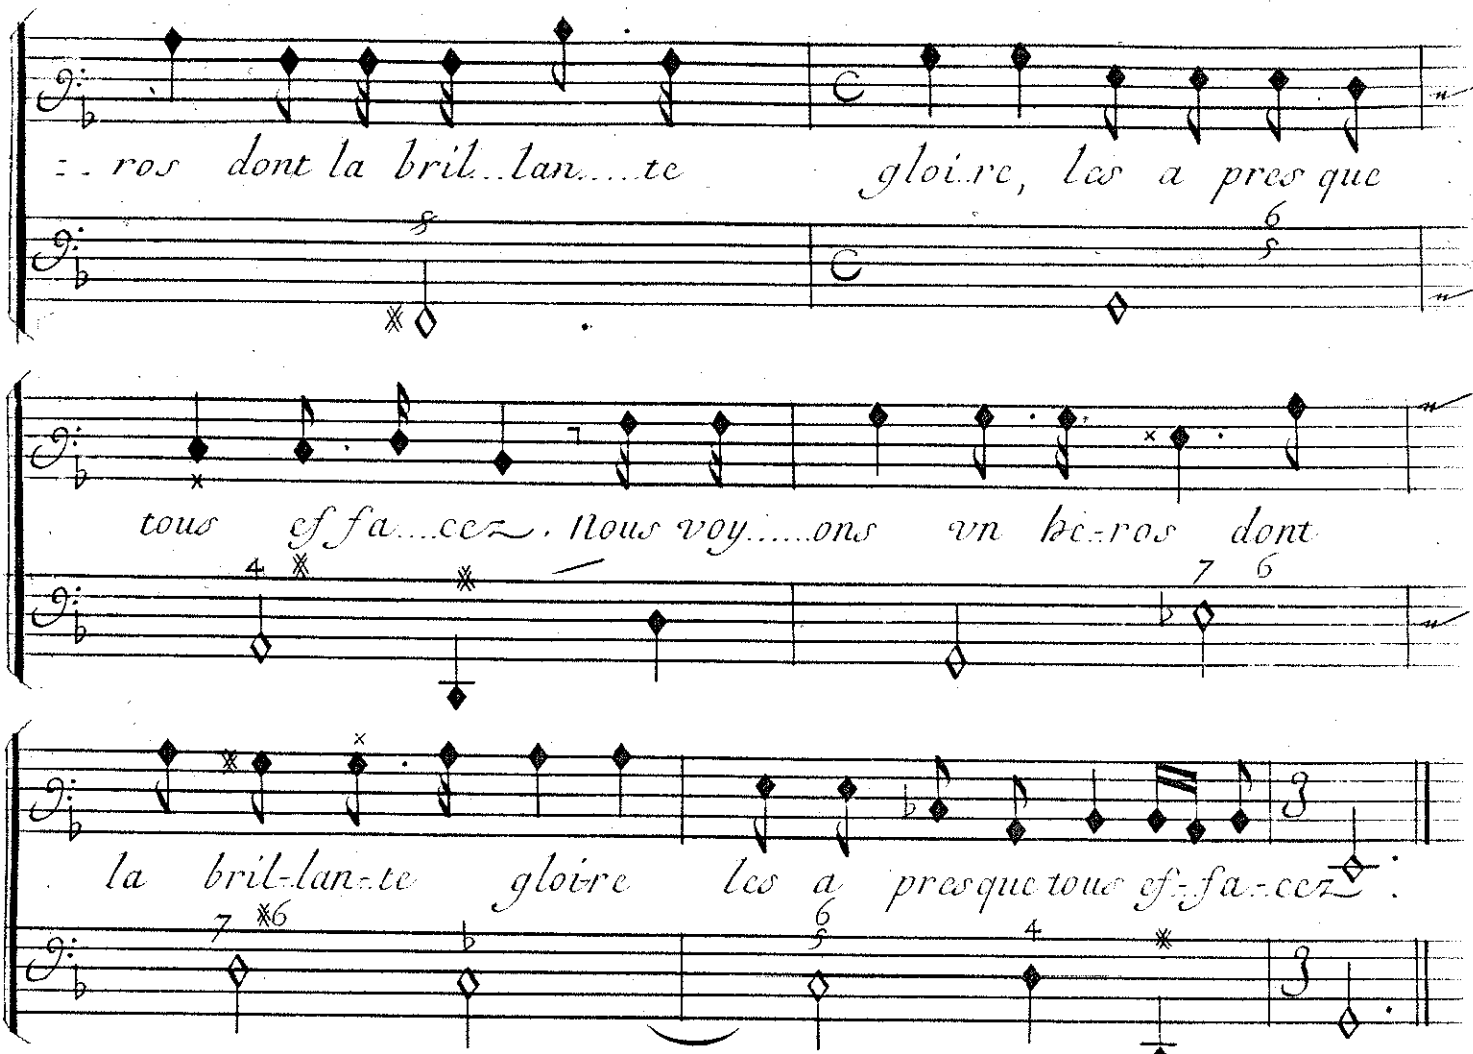 :.. ros dont la bril...lan.....te gloi..re, les a pres que
5 6
5
tous ef fa....cez. Nous voy......ons vn he-.ros dont
4 7 6
la bril-lan-.te gloi-re les a presque tous ef-.fa-.cez.
7 6 6 4
5
3
3